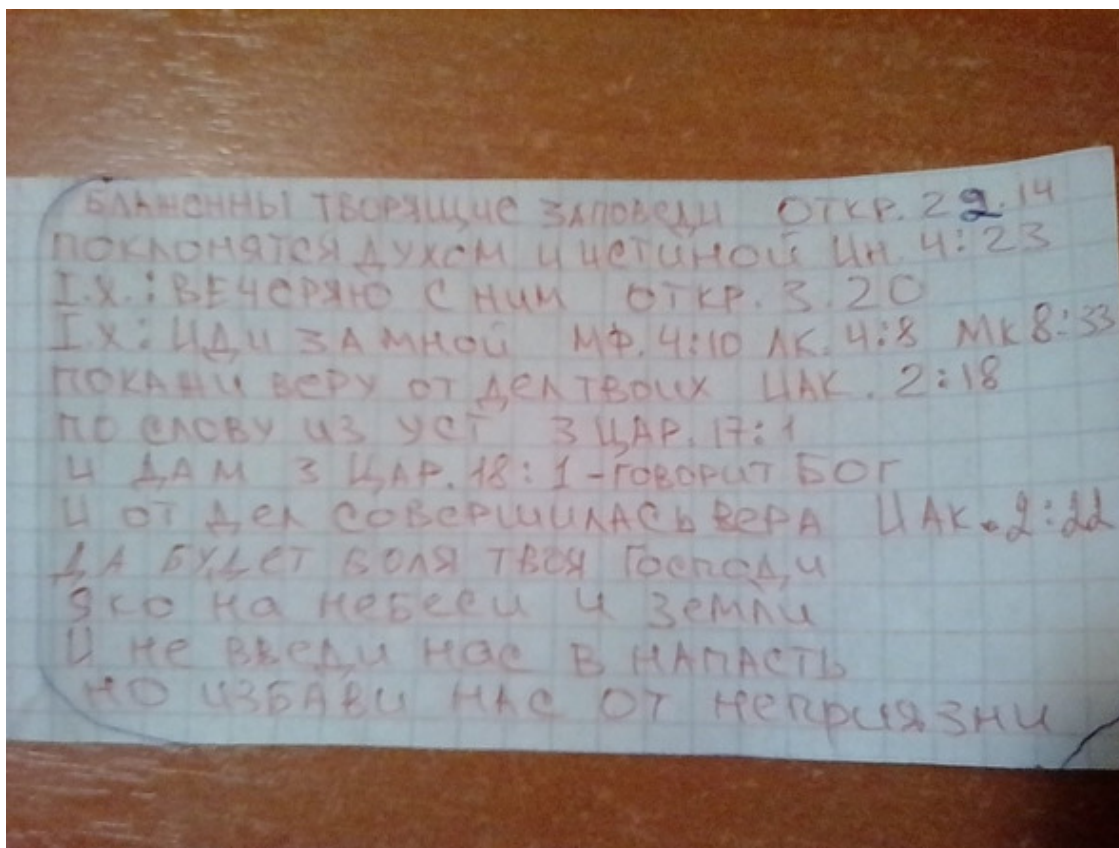 БЛАЖЕННЫ ТВОРЯЩИЕ ЗАПОВЕДИ ОТКР. 22.14
ПОКЛОНЯТСЯ ДУХОМ И ИСТИНОЙ ИН. 4:23
I.Х.: ВЕЧЕРЯЮ С НИМ ОТКР. 3.20
I.Х: ИДИ ЗА МНОЙ МФ. 4:10 ЛК. 4:8 МК 8:33
ПОКАЖИ ВЕРУ ОТ ДЕЛ ТВОИХ ИАК. 2:18
ПО СЛОВУ ИЗ УСТ 3 ЦАР. 17:1
И ДАМ 3 ЦАР. 18:1 - ГОВОРИТ БОГ
И ОТ ДЕЛ СОВЕРШИЛАСЬ ВЕРА ИАК. 2:22
ДА БУДЕТ ВОЛЯ ТВОЯ Господи
Яко на небеси и земли
И не введи нас в НАПАСТЬ
НО ИЗБАВИ НАС ОТ неприязни